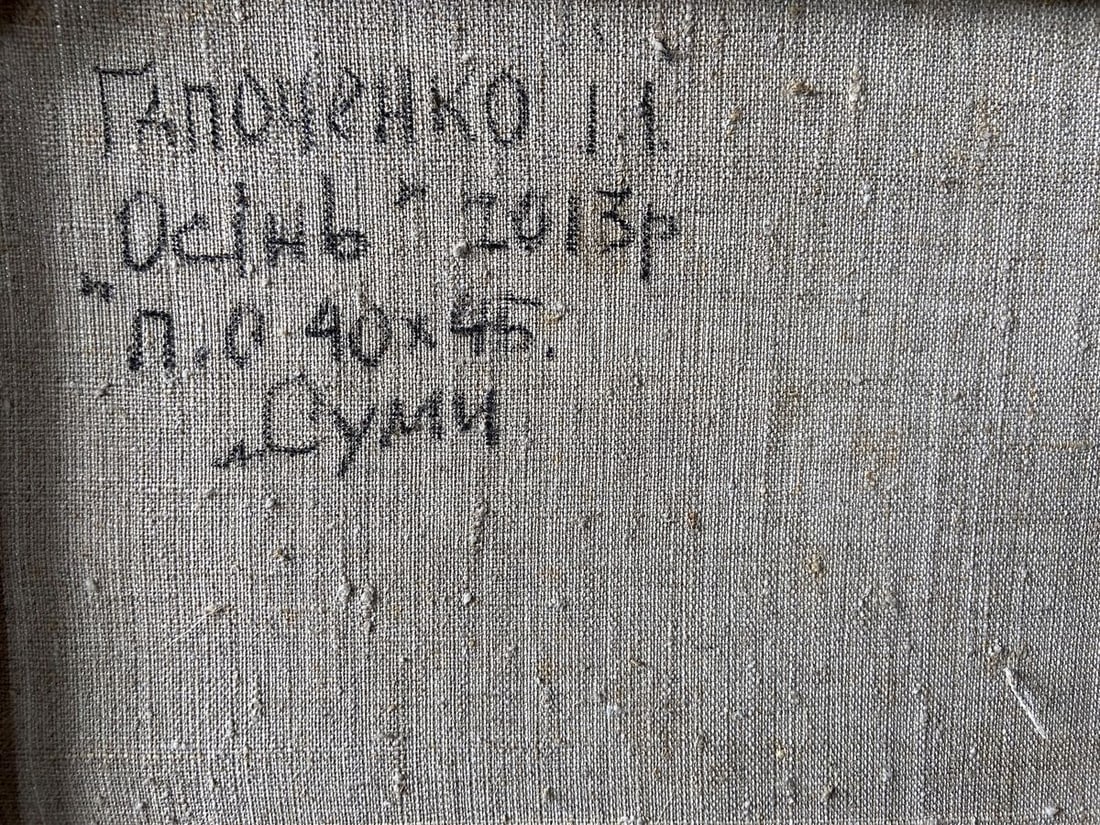 Гапоченко І.І
„Осінь" 2013р
п.о 40х45.
„Суми